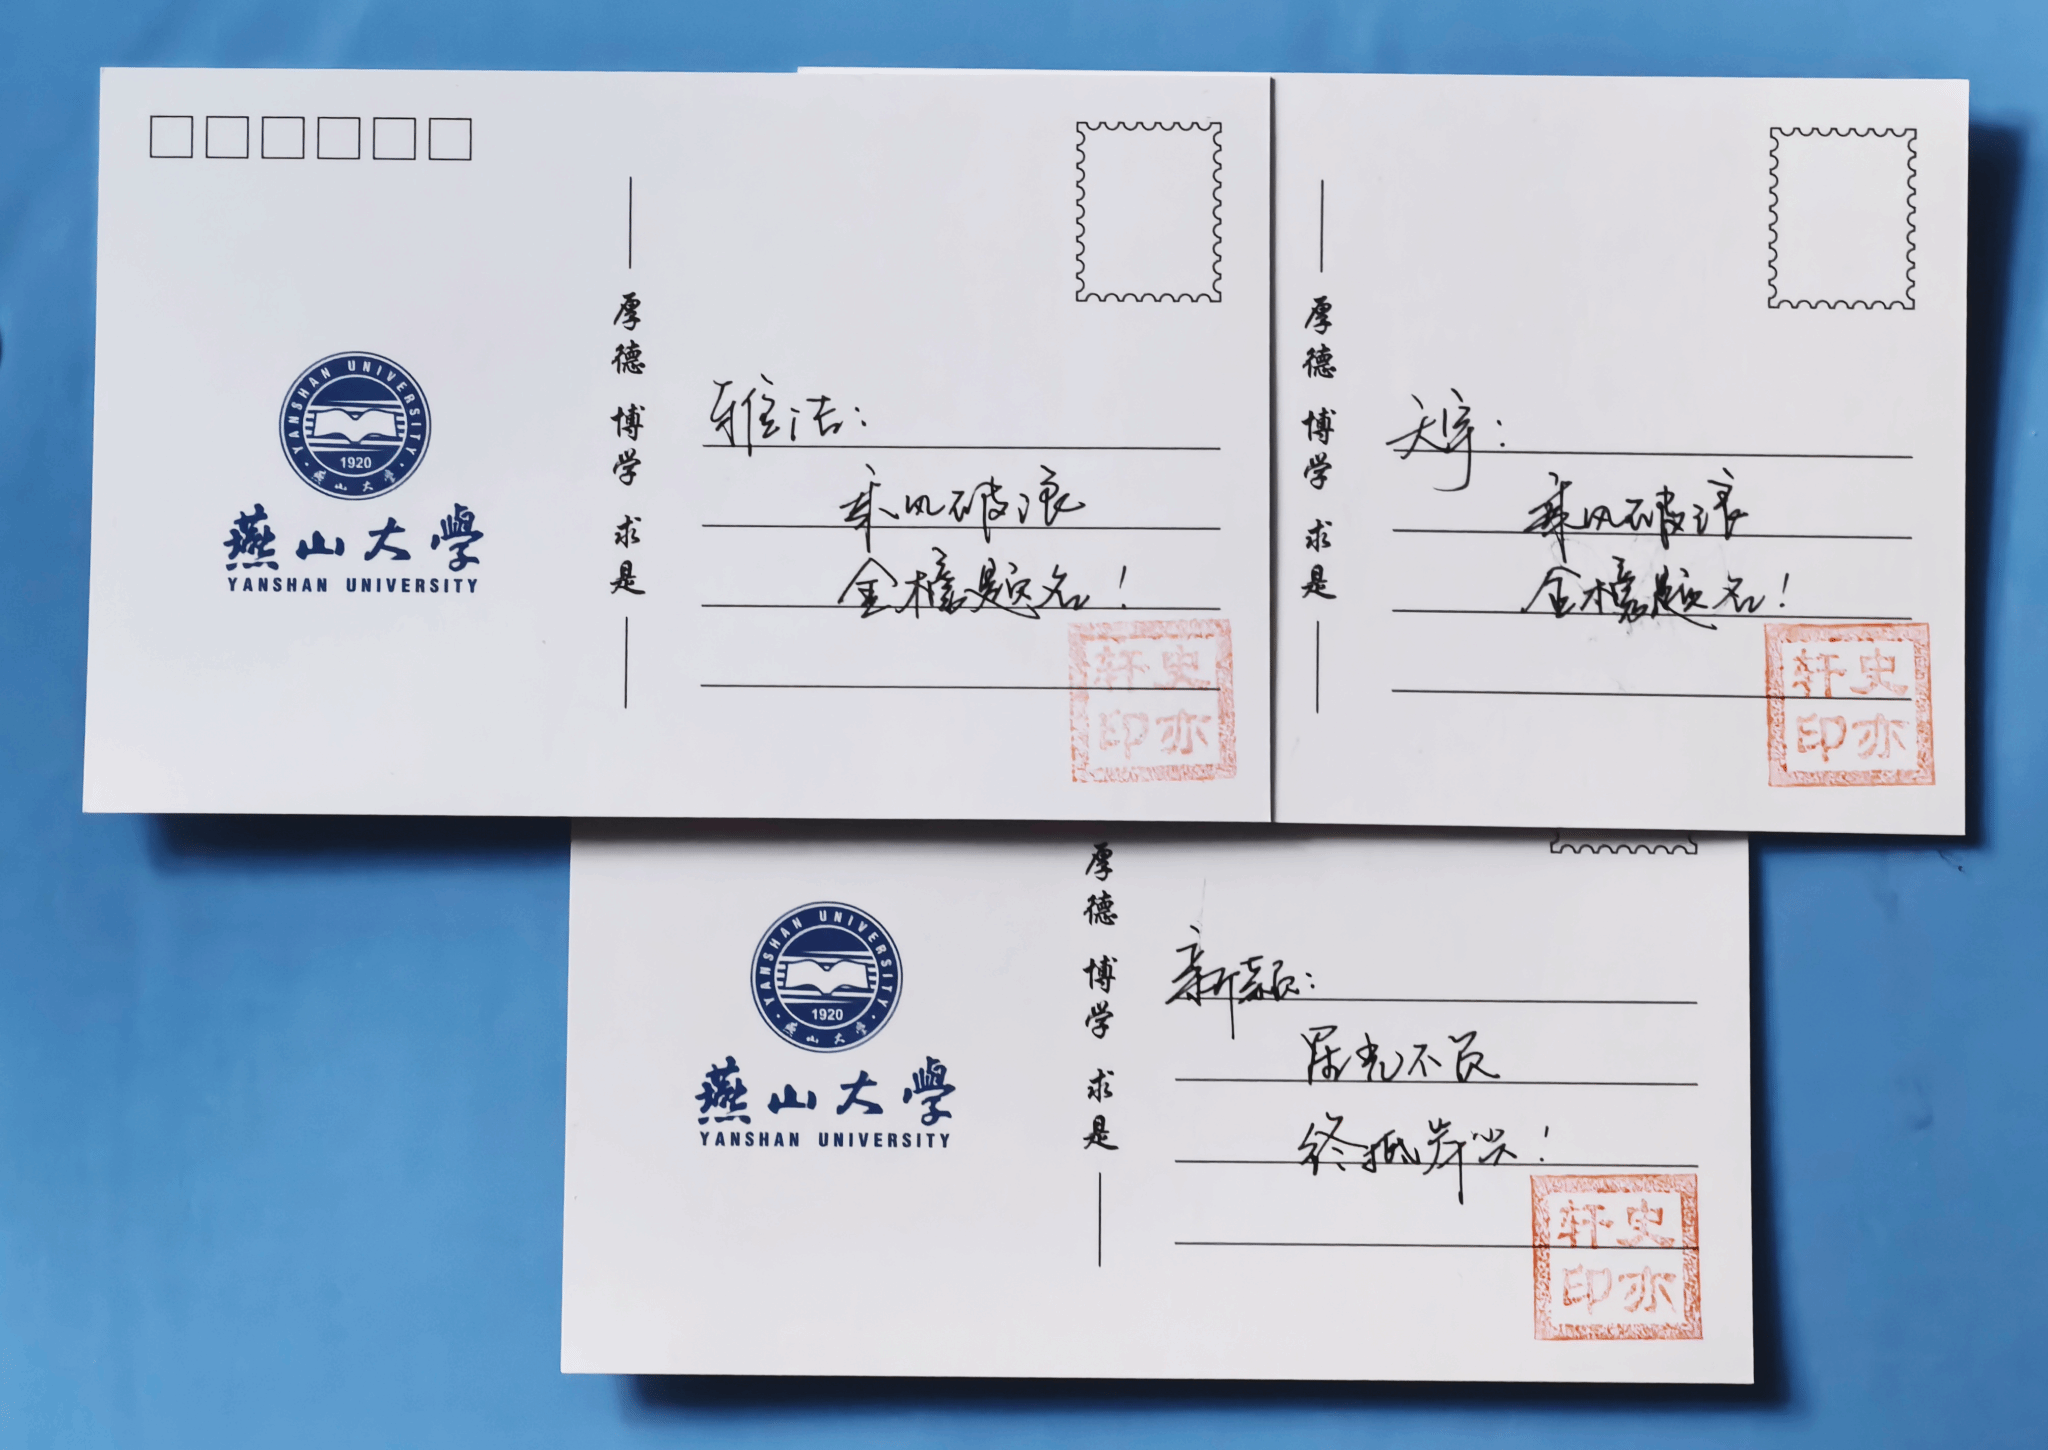 厚德 博学 求是
YANSHAN UNIVERSITY
1920
燕山大学
燕山大學
YANSHAN UNIVERSITY
雅洁:
乘风破浪
金榜题名!
史亦
轩印
厚德 博学 求是
天宇:
乘风破浪
金榜题名!
史亦
轩印
厚德 博学 求是
YANSHAN UNIVERSITY
1920
燕山大学
燕山大學
YANSHAN UNIVERSITY
新颖:
星光不负
终抵岸兴!
史亦
轩印